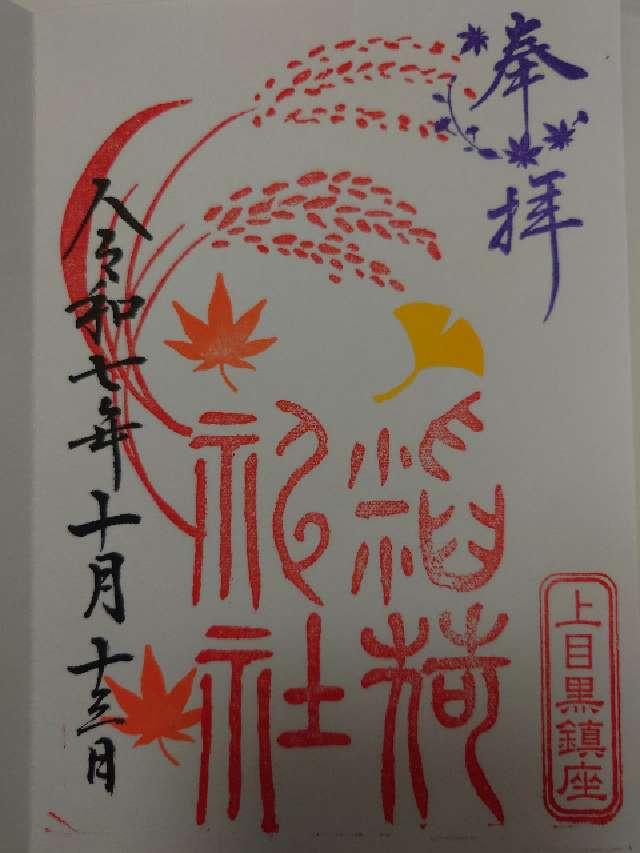 奉拝
稲荷
神社
上目黒鎮座
令和七年十月十三日